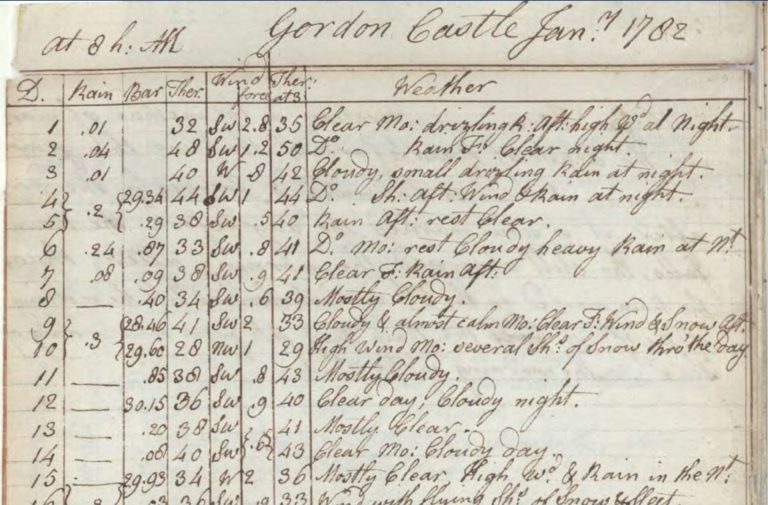 at 8 h: AM Gordon Castle Jan.y 1782
D. Rain Bar Ther. Wind force Ther: at 3 Weather
1 .01 32 SW 2.8 35 Clear Mo: drizling R: Aft: high Wd at Night.
2 .04 48 SW 1.2 50 Do Rain F: Clear night.
3 .01 40 W .8 42 Cloudy, small drizling Rain at night.
4 .2 29.34 44 SW 1 44 Do Sh: Aft: Wind & Rain at night.
5 .29 38 SW .5 40 Rain Aft: rest Clear.
6 .24 .87 33 SW .8 41 Do Mo: rest Cloudy heavy Rain at Nt
7 .08 .09 38 SW .9 41 Clear F: Rain Aft:
8 — .40 34 SW .6 39 Mostly Cloudy.
9 .3 28.46 41 SW 2 33 Cloudy & almost calm Mo: Clear F: Wind & Snow Aft.
10 29.60 28 NW 1 29 High Wind Mo: several Shs. of Snow thro' the day
11 — .85 38 SW .8 43 Mostly Cloudy
12 — 30.15 36 SW .9 40 Clear day, Cloudy night.
13 — .20 38 SW .6 41 Mostly Clear.
14 — .08 40 SW 43 Clear Mo: Cloudy day.
15 — 29.93 34 W 2 36 Mostly Clear, High Wd. & Rain in the Nt
16 .03 36 SW 33 Wind with flying Shs. of Snow & Sleet.